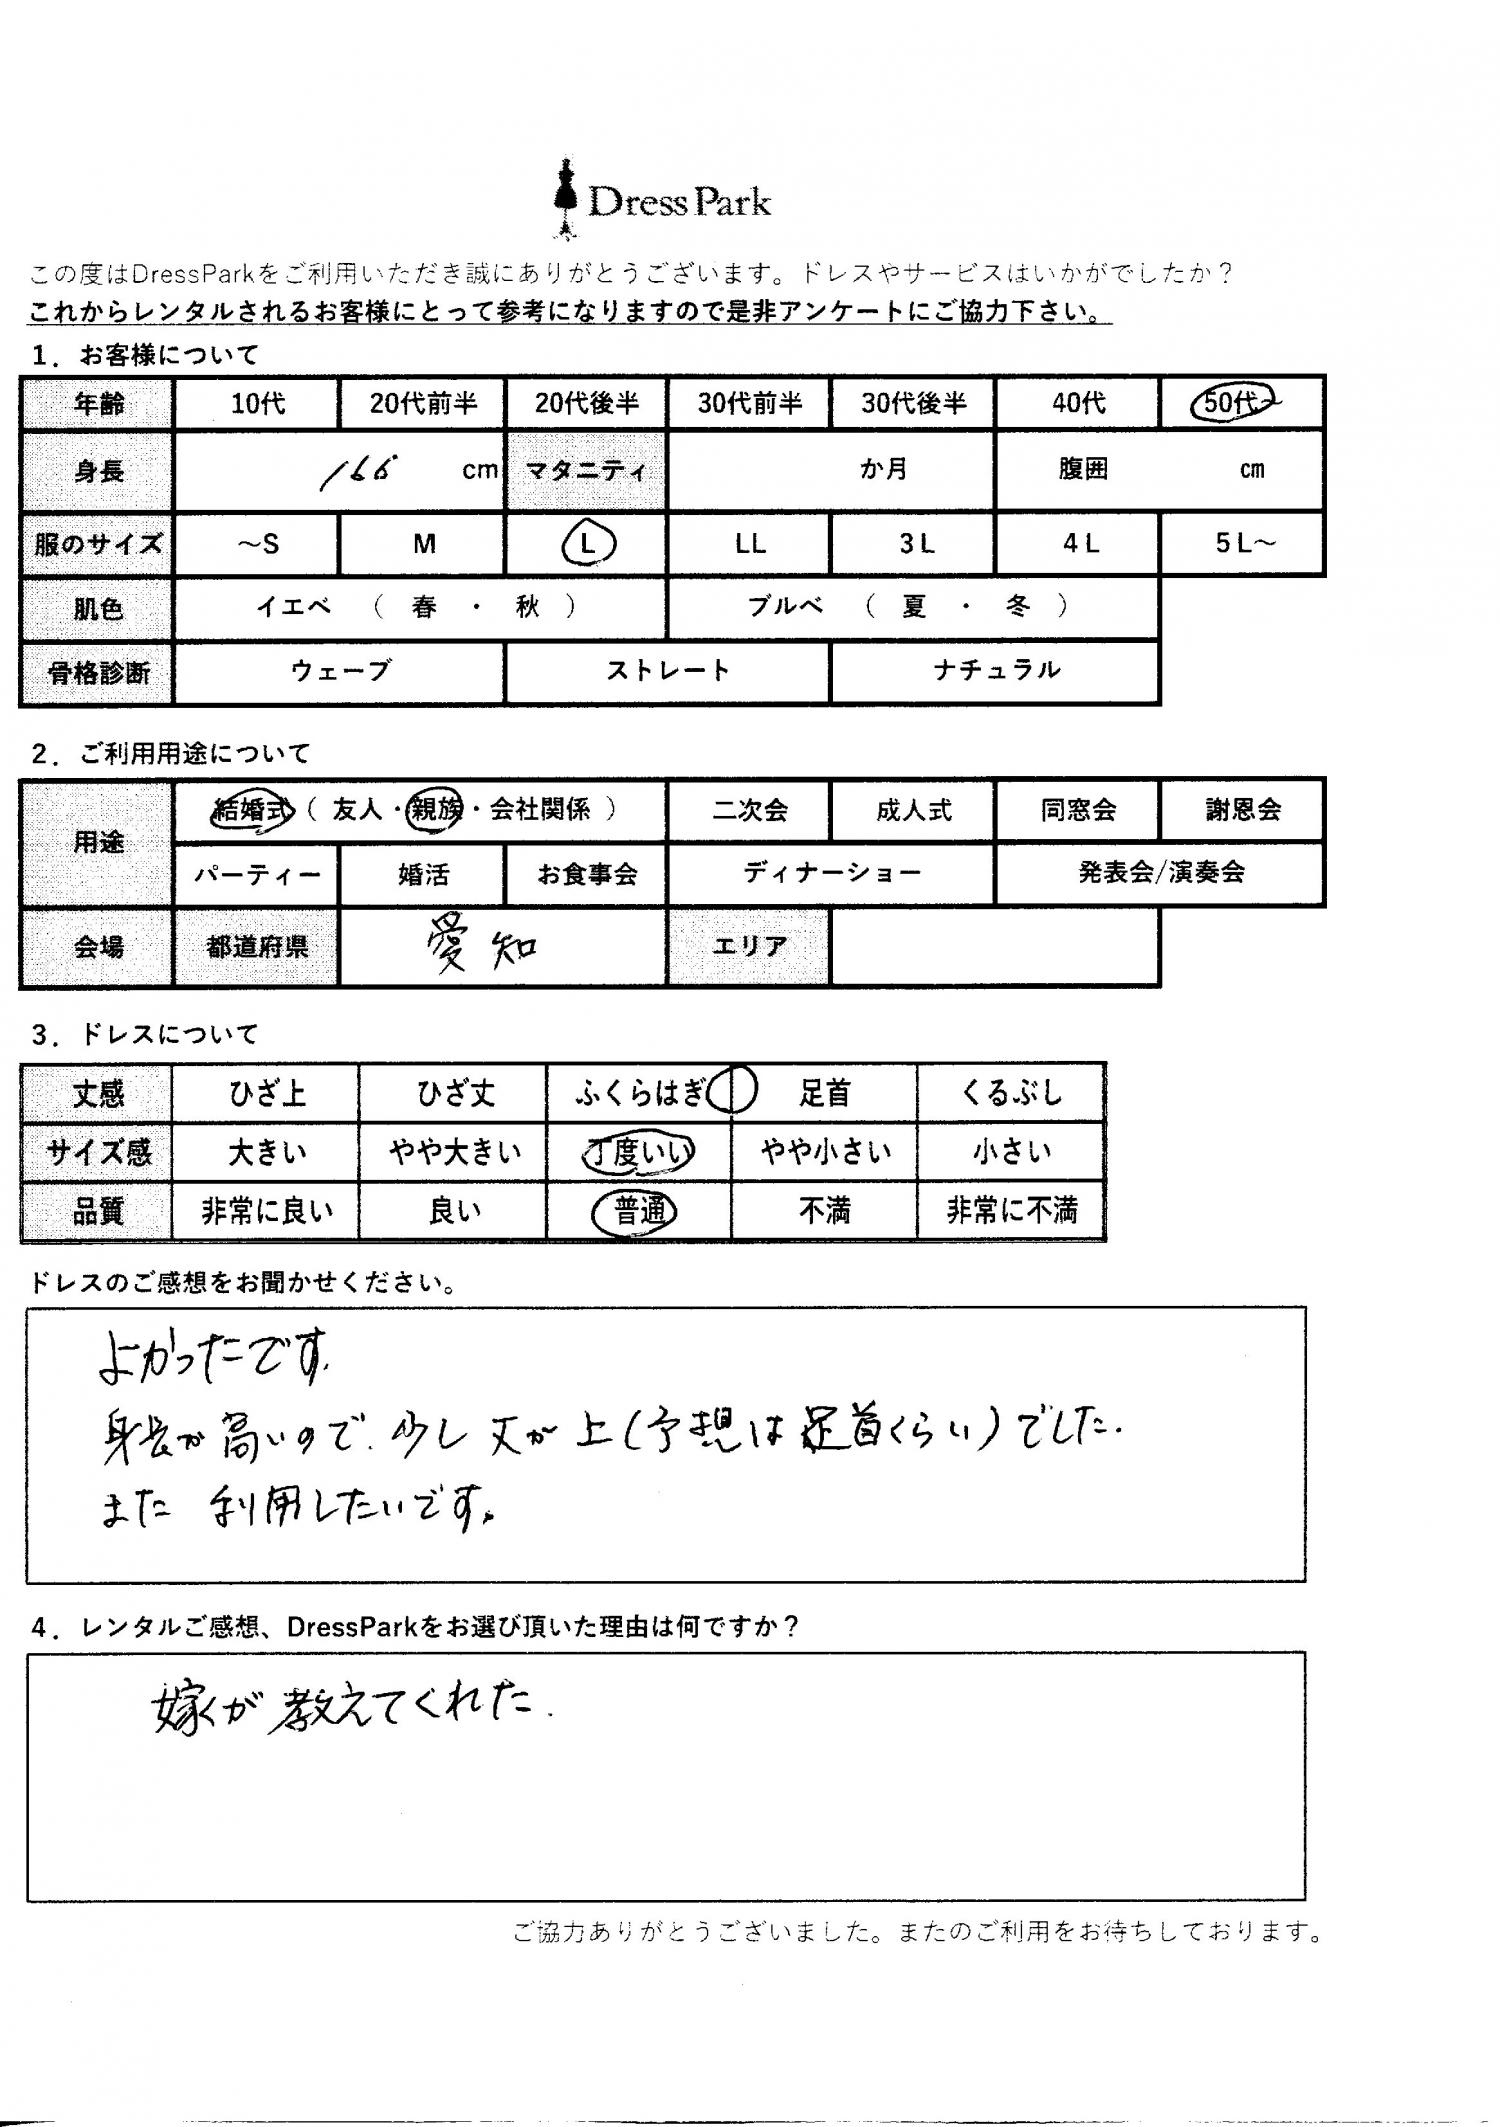 Dress Park
この度はDressParkをご利用いただき誠にありがとうございます。ドレスやサービスはいかがでしたか？
これからレンタルされるお客様にとって参考になりますので是非アンケートにご協力下さい。
1．お客様について
年齢 10代 20代前半 20代後半 30代前半 30代後半 40代 50代～
身長 166 cm マタニティ か月 腹囲 cm
服のサイズ ～S M L LL 3L 4L 5L～
肌色 イエベ （ 春 ・ 秋 ） ブルベ （ 夏 ・ 冬 ）
骨格診断 ウェーブ ストレート ナチュラル
2．ご利用用途について
用途 結婚式（ 友人・親族・会社関係 ） 二次会 成人式 同窓会 謝恩会
パーティー 婚活 お食事会 ディナーショー 発表会/演奏会
会場 都道府県 愛知 エリア
3．ドレスについて
丈感 ひざ上 ひざ丈 ふくらはぎ 足首 くるぶし
サイズ感 大きい やや大きい 丁度いい やや小さい 小さい
品質 非常に良い 良い 普通 不満 非常に不満
ドレスのご感想をお聞かせください。
よかったです.
身長が高いので.少し丈が上(予想は足首くらい)でした.
また 利用したいです。
4．レンタルご感想、DressParkをお選び頂いた理由は何ですか？
嫁が教えてくれた.
ご協力ありがとうございました。またのご利用をお待ちしております。